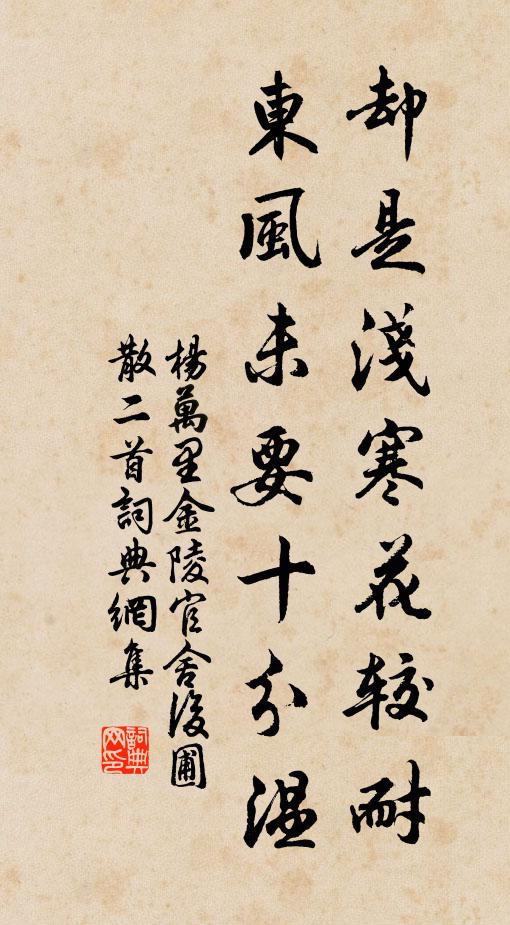 却是淺寒花较耐
東風未要十分温
楊萬里金陵官舍後圃
散二首詞典網集
詞典网印